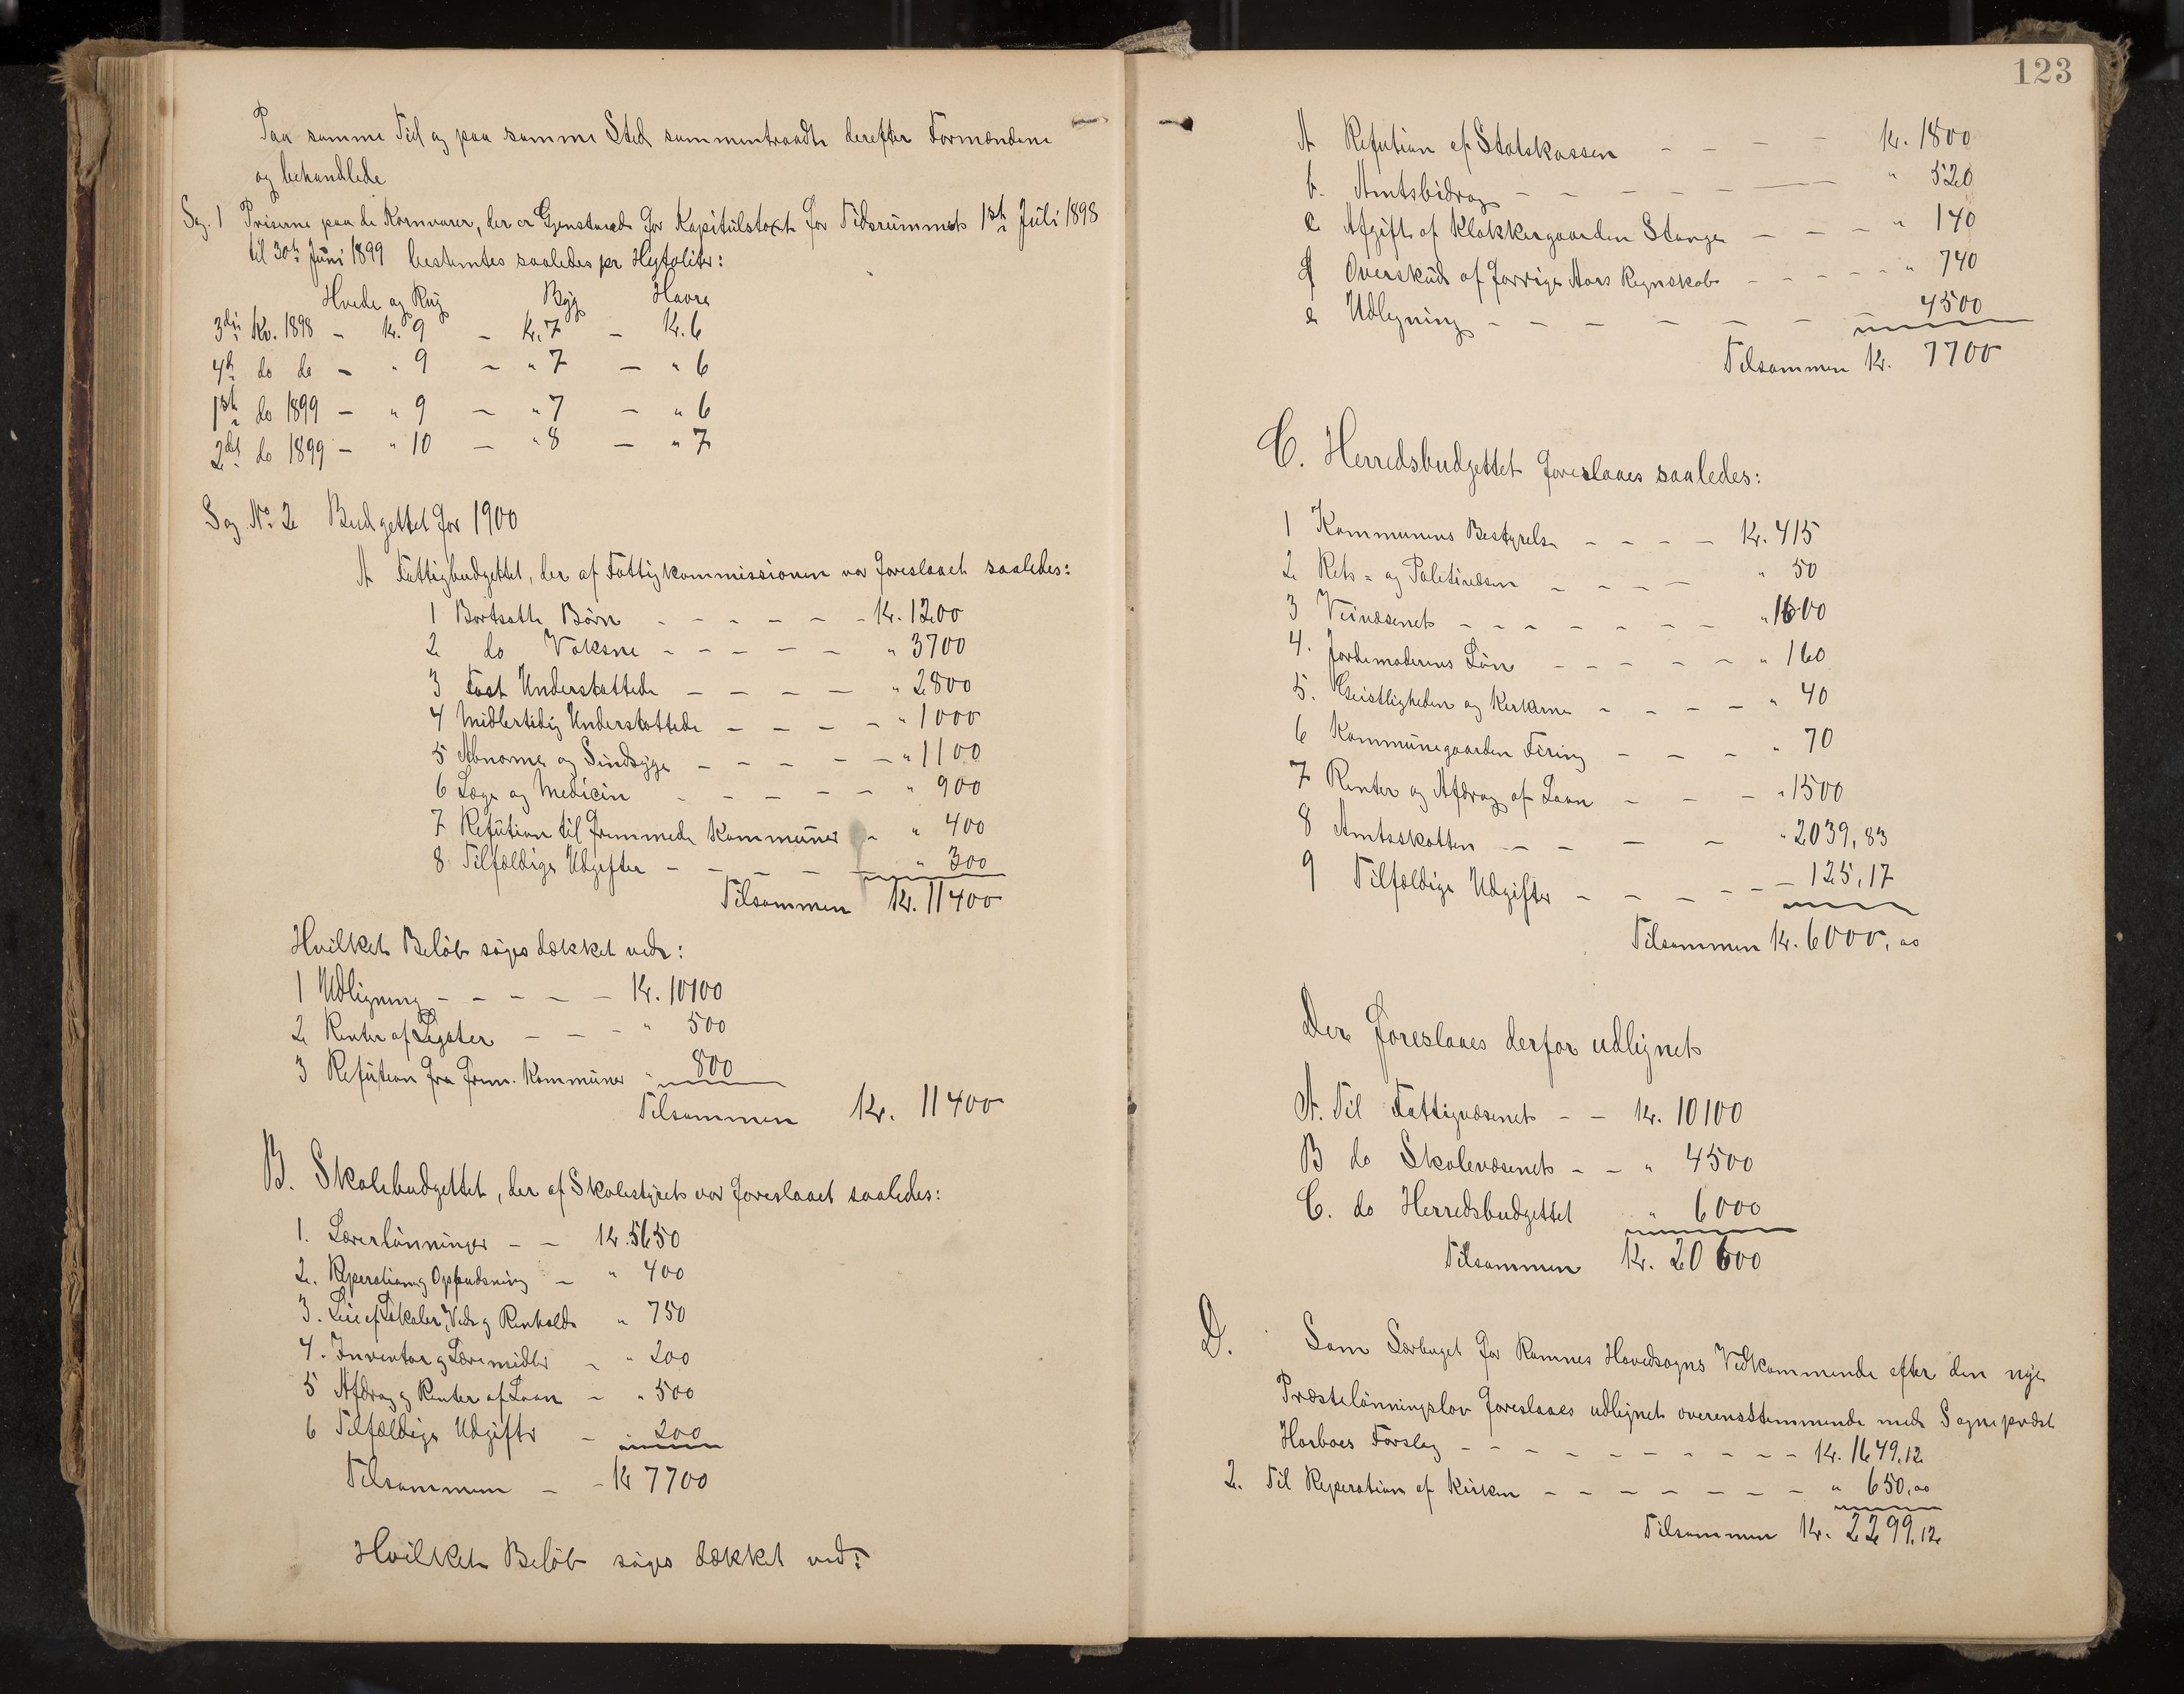 Paa samme Tid og paa samme Sted sammentraadte derefter Formændene
og behandlede
Sag. 1 Priserne paa de Kornvarer, der er Genstand for Kapitülstaxt for Tidsrümmet 1ste Jüli 1898
til 30te Jüni 1899 bestemtes saaledes pr Hektoliter:
Hvede og Rug Byg Havre
3die Kv. 1898 – Kr. 9 – Kr. 7 – Kr. 6
4de do do – " 9 – " 7 – " 6
1ste do 1899 – " 9 – " 7 – " 6
2det do 1899 – " 10 – " 8 – " 7
Sag No. 2 Budgettet for 1900
A Fattigbudgettet, der af Fattigkommissionen var foreslaaet saaledes:
1 Bortsatte Börn – – – – – Kr. 1200
2 do Voksne – – – – – " 3700
3 Fast Understøttede – – – – " 2800
4 Midlertidig Understøttede – – – – " 1000
5 Abnorme og Sindsyge – – – – – " 1100
6 Læge og Medicin – – – – – " 900
7 Refütion til fremmede Kommüner – " 400
8 Tilfældige Udgifter – – – – " 300
Tilsammen Kr. 11400
Hvilket Beløb søges dækket ved:
1 Udligning – – – – – Kr. 10100
2 Renter af Legater – – – " 500
3 Refütion fra frem. Kommüner " 800
Tilsammen Kr. 11400
B. Skolebudgettet, der af Skolestyret var foreslaaet saaledes:
1. Lærerlönninger – – Kr. 5650
2. Reperation og Oppudsning – " 400
3. Leie af Lokaler, Ved og Renhold " 750
4. Inventar og Læremidler – " 200
5 Afdrag og Renter af Laan – " 500
6 Tilfældige Udgifter – " 200
Tilsammen – – Kr 7700
Hvilket Beløb søges dækket ved:
123
A Refution af Statskassen – – – – Kr. 1800
b. Amtsbidrag – – – – – – " 520
c Afgift af Klokkergaarden Stange – – – " 140
d Overskud af forrige Aars Regnskab – – – – " 740
e Udligning – – – – – – – 4500
Tilsammen Kr. 7700
C. Herredsbudgettet foreslaaes saaledes:
1 Kommunens Bestyrelse – – – – Kr. 415
2 Rets- og Politivæsen – – – – " 50
3 Veivæsenet – – – – – – – " 1600
4. Jordemoderens Løn – – – – – " 160
5. Geistligheden og Kirkerne – – – – " 40
6 Kommünegaarden Firing – – – " 70
7 Renter og Afdrag af Laan – – – " 1500
8 Amtsskatten – – – – – " 2039,83
9 Tilfældige Udgifter – – – – – – 125,17
Tilsammen Kr. 6000,00
Der foreslaaes derfor udlignet
A. Til Fattigvæsenet – – Kr. 10100
B do Skolevæsenet – – " 4500
C. do Herredsbudgettet " 6000
Tilsammen Kr. 20600
D. Som Særbuget for Ramnes Hovedsogns Vedkommende efter den nye
Præstelønningslov foreslaaes udlignet overensstemmende med Sogneprest
Horboes Forslag – – – – – – – – – – Kr. 1649,12
2. Til Reperation af Kirken – – – – – – – " 650,00
Tilsammen Kr. 2299,12